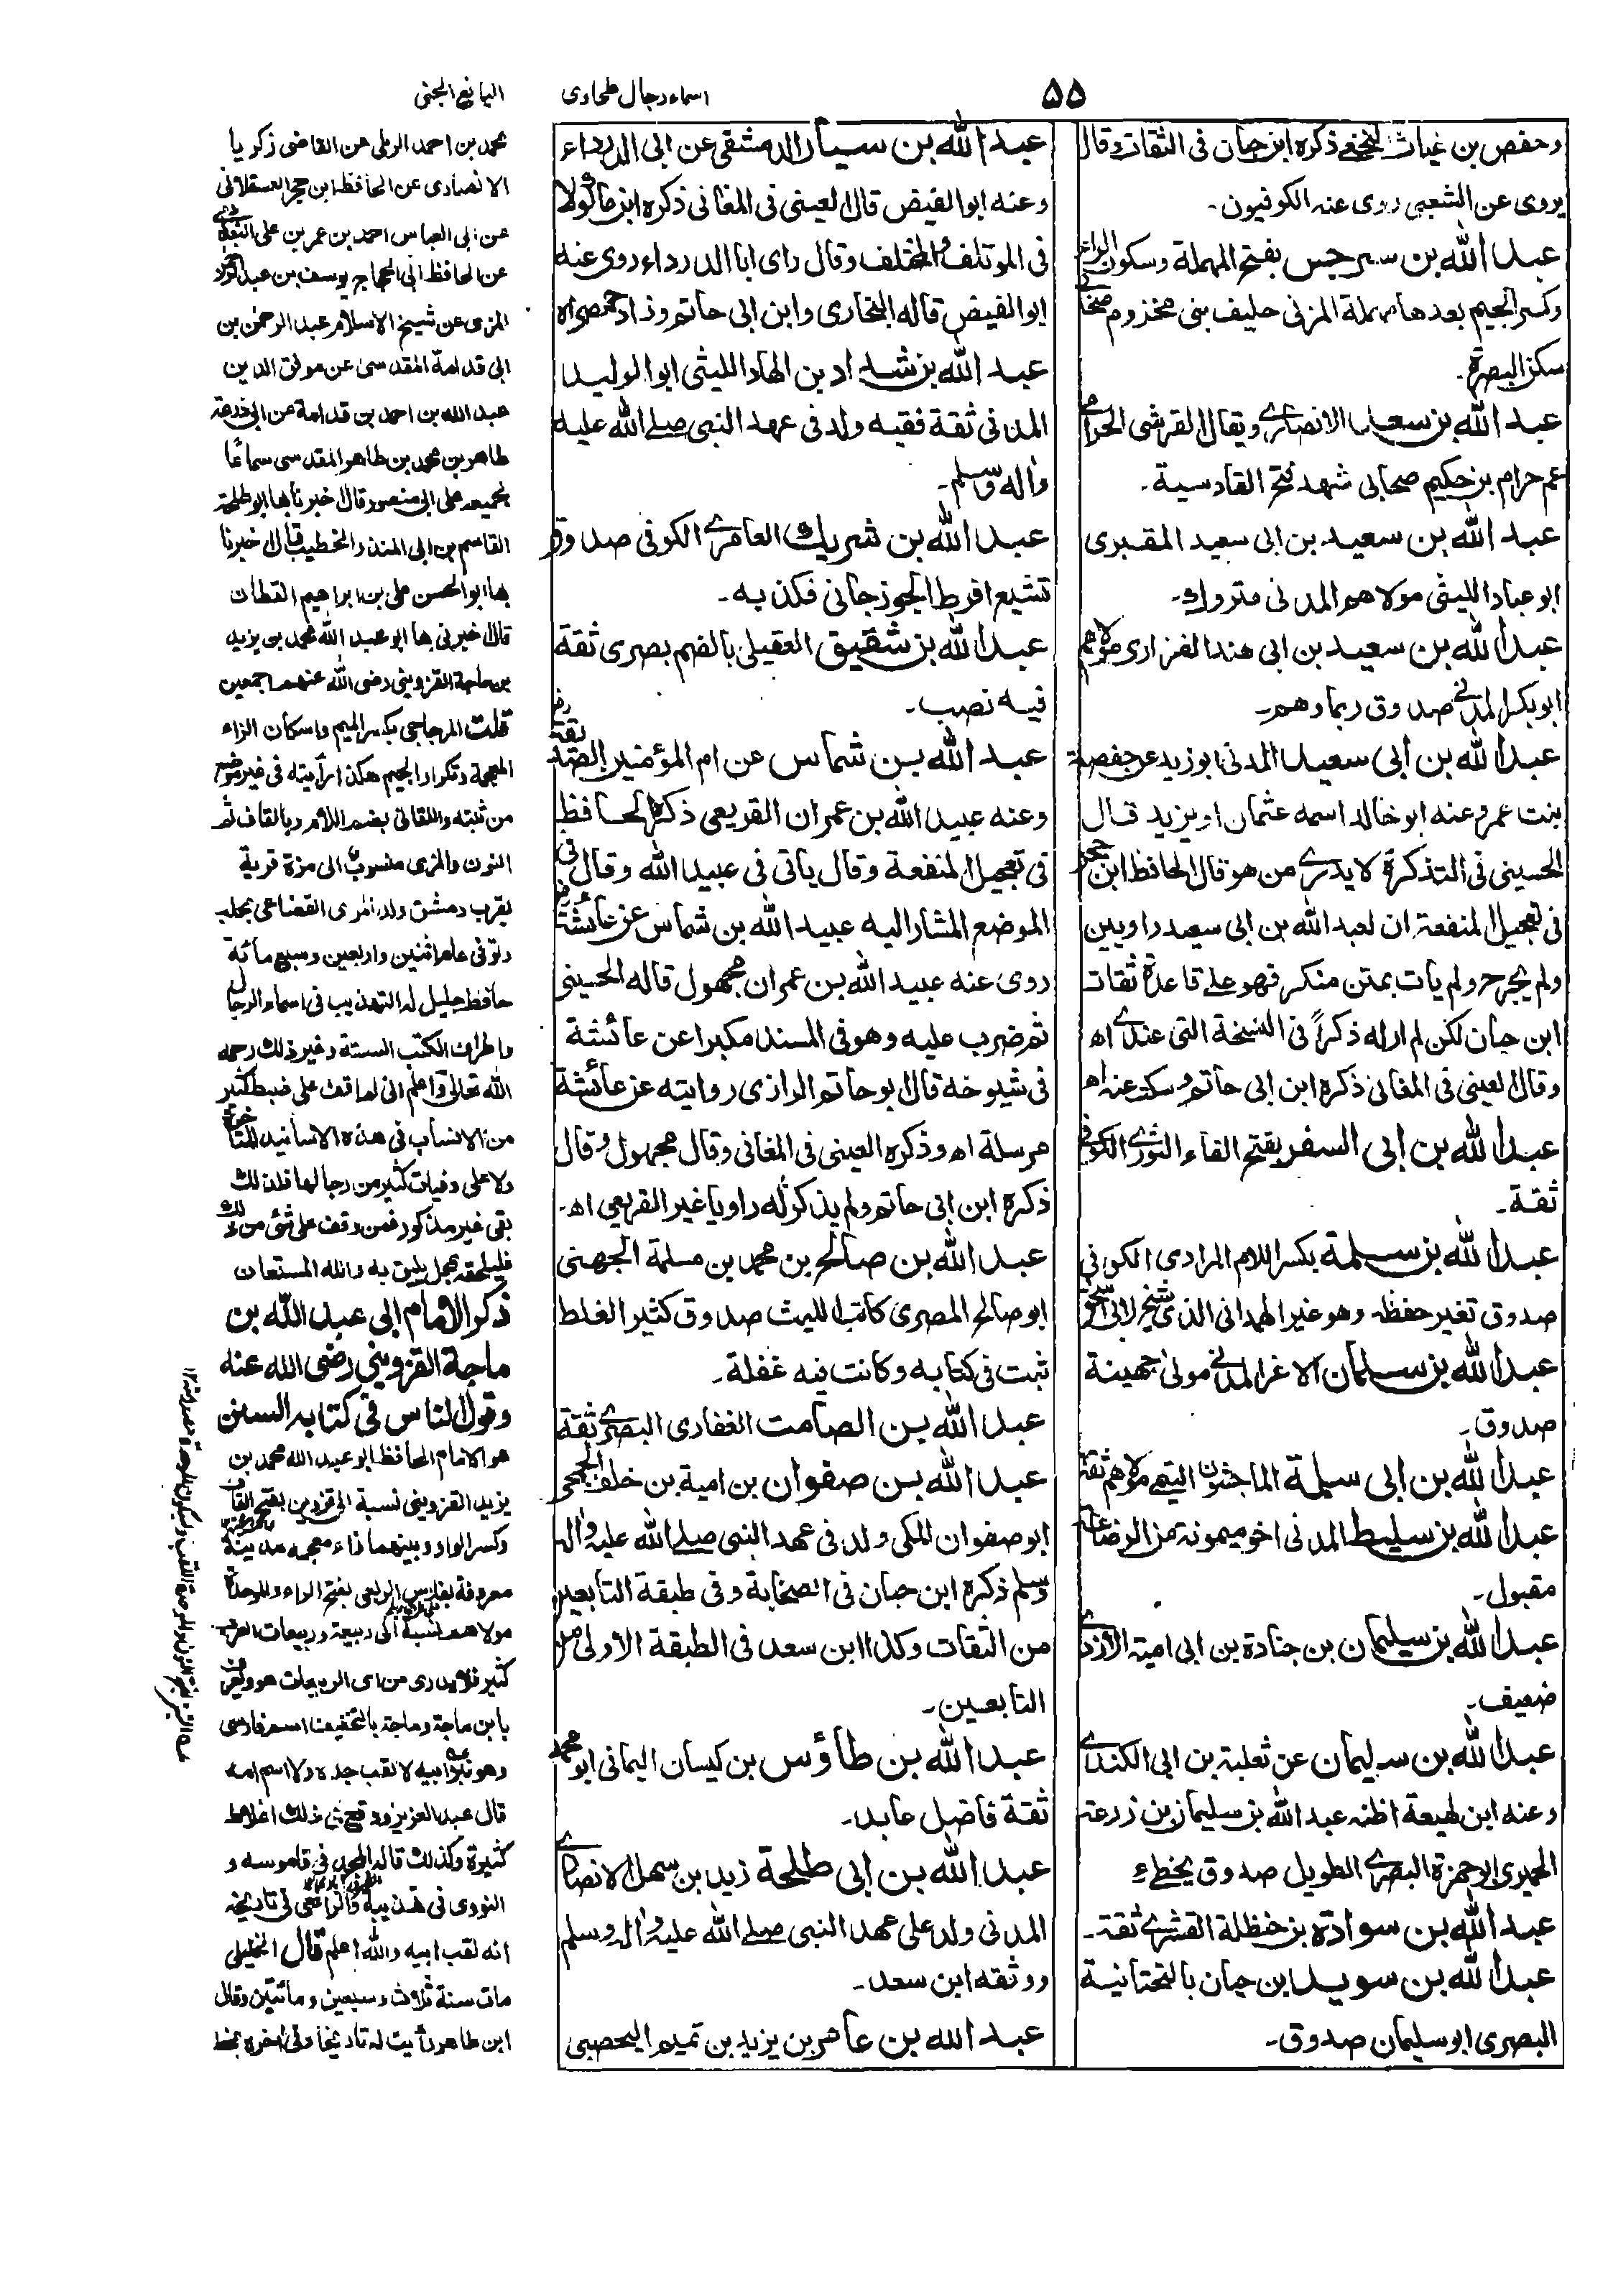 ۵۵
اسماء رجال طحاوی
اليانع الجنی
وحفص بن غياث النخعی ذكره ابن حبان فی الثقات وقال
يروی عن الشعبی روی عنه الكوفيون۔
عبد الله بن سرجس بفتح المهملة وسكون الراء
وكسر الجيم بعدها مهملة المزنی حليف بنی مخزوم صحابی
سكن البصرة۔
عبد الله بن سعد الانصاری ويقال القرشی الحرامی
عم حرام بن حكيم صحابی شهد فتح القادسية۔
عبد الله بن سعيد بن ابی سعيد المقبری
ابو عباد الليثی مولاهم المدنی متروك۔
عبد الله بن سعيد بن ابی هند الفزاری مولاهم
ابو بكر المدنی صدوق ربما وهم۔
عبد الله بن ابی سعيد المدنی ابو زيد عن حفصة
بنت عمر وعنه ابو خالد اسمه عثمان او يزيد قال
الحسينی فی التذكرة لا يدری من هو قال الحافظ ابن حجر
فی تعجيل المنفعة ان لعبد الله بن ابی سعيد راويين
ولم يجرح ولم يات بمتن منكر فهو علی قاعدة ثقات
ابن حبان لكن لم ار له ذكراً فی النسخة التی عندی اه
وقال العينی فی المغانی ذكره ابن ابی حاتم وسكت عنه اه
عبد الله بن ابی السفر بفتح الفاء الثوری الكوفی
ثقة۔
عبد الله بن سلمة بكسر اللام المرادی الكوفی
صدوق تغير حفظه وهو غير الهمدانی الذی شيخ لابی اسحق
عبد الله بن سلمان الاغر المدنی مولی جهينة
صدوق۔
عبد الله بن ابی سلمة الماجشون التيمی مولاهم ثقة
عبد الله بن سليط المدنی اخو ميمونة من الرضاعة
مقبول۔
عبد الله بن سليمان بن جنادة بن ابی امية الازدی
ضعيف۔
عبد الله بن سليمان عن ثعلبة بن ابی الكندی
وعنه ابن لهيعة اظنه عبد الله بن سليمان بن زرعة
الحميری ابو حمزة البصری الطويل صدوق يخطیء
عبد الله بن سوادة بن حنظلة القشری ثقة۔
عبد الله بن سويد ابن حيان بالتحتانية
البصری ابو سليمان صدوق۔
عبد الله بن سيار الدمشقی عن ابی الدرداء
وعنه ابو الفيض قال العينی فی المغانی ذكره ابن ماكولا
فی الموتلف والمختلف وقال رای ابا الدرداء روی عنه
ابو الفيض قاله البخاری وابن ابی حاتم وزاد حمصی اه
عبد الله بن شداد بن الهاد الليثی ابو الوليد
المدنی ثقة فقيه ولد فی عهد النبی صلے الله عليه
واله وسلم۔
عبد الله بن شريك العامری الكوفی صدوق
تشيع افرط الجوزجانی فكذبه۔
عبد الله بن شقيق العقيلی بالضم بصری ثقة
فيه نصب۔
عبد الله بن شماس عن ام المؤمنين الصديقة رض
وعنه عبيد الله بن عمران القريعی ذكره الحافظ
فی تعجيل المنفعة وقال ياتی فی عبيد الله وقال فی
الموضع المشار اليه عبيد الله بن شماس عن عائشة رض
روی عنه عبيد الله بن عمران مجهول قاله الحسينی
ثم ضرب عليه وهو فی المسند مكبرا عن عائشة
فی شيوخه قال ابو حاتم الرازی روايته عن عائشة
مرسلة اه وذكره العينی فی المغانی وقال مجهول وقال
ذكره ابن ابی حاتم ولم يذكر له راويا غير القريعی اه۔
عبد الله بن صالح بن محمد بن مسلمة الجهنی
ابو صالح المصری كاتب الليث صدوق كثير الغلط
ثبت فی كتابه وكانت فيه غفلة۔
عبد الله بن الصامت الغفاری البصری ثقة
عبد الله بن صفوان بن امية بن خلف الجمحی
ابو صفوان المكی ولد فی عهد النبی صلے الله عليه واله
وسلم ذكره ابن حبان فی الصحابة وفی طبقة التابعين
من الثقات وكذا ابن سعد فی الطبقة الاولی من
التابعين۔
عبد الله بن طاؤس بن كيسان اليمانی ابو محمد
ثقة فاضل عابد۔
عبد الله بن ابی طلحة زيد بن سهل الانصاری
المدنی ولد علی عهد النبی صلے الله عليه واله وسلم
ووثقه ابن سعد۔
عبد الله بن عامر بن يزيد بن تميم اليحصبی
محمد بن احمد الرملی عن القاضی زكريا
الانصاری عن الحافظ ابن حجر العسقلانی
عن ابی العباس احمد بن عمر بن علی البغدادی
عن الحافظ ابی الحجاج يوسف بن عبد الرحمن
المزی عن شيخ الاسلام عبد الرحمن بن
ابی قدامة المقدسی عن موفق الدين
عبد الله بن احمد بن قدامة عن ابی زرعة
طاهر بن محمد بن طاهر المقدسی سماعًا
لجميعه علی ابی منصور قال اخبرنا بها ابو طلحة
القاسم بن ابی المنذر الخطيب قال اخبرنا
بها ابو الحسن علی بن ابراهيم القطان
قال اخبرنی بها ابو عبد الله محمد بن يزيد
بن ماجة القزوينی رضی الله عنهم اجمعين
قلت المزجاجی بكسر الميم واسكان الزاء
المعجمة وتكرار الجيم هكذا رأيته فی غير موضع
من ثبته واللقانی بضم اللام وبالقاف ثم
النون والمزی منسوب الی مزة قرية
بقرب دمشق ولد المزی القضاعی بحلب
وتوفی عام اثنين واربعين وسبع مائة
حافظ جليل له التهذيب فی اسماء الرجال
واطراف الكتب الستة وغير ذلك رحمه
الله تعالی واعلم انی لم اقف علی ضبط كثير
من الانساب فی هذه الاسانيد للمتاخرين
ولا علی وفيات كثير من رجالها فلذلك
بقی غير مذكور فمن وقف علی شئ من ذلك
فليلحقه بمحل يليق به والله المستعان
ذكر الامام ابی عبد الله بن
ماجة القزوينی رضی الله عنه
وقول الناس فی كتابه السنن
هو الامام الحافظ ابو عبد الله محمد بن
يزيد القزوينی نسبة الی قزوين بفتح القاف
وكسر الواو وبينهما زاء معجمه مدينة
معروفة بفارس الربعی بفتح الراء والموحدة
مولاهم نسبة الی ربيعة وربيعات العرب
كثير فلا يدری من ای الربيعات هو ويعرف
بابن ماجة وماجة بالتخفيف اسم فارسی
وهو لقب ابيه لا لقب جده ولا اسم امه
قال عبد العزيز ووقع فی ذلك اغلاط
كثيرة وكذلك قاله المجد فی قاموسه و
النووی فی تهذيبه والرافعی فی تاريخه
انه لقب ابيه والله اعلم قال الخليلی
مات سنة ثلاث وسبعين ومائتين وقال
ابن طاهر رأيت له تاريخا وفی اخره بخط